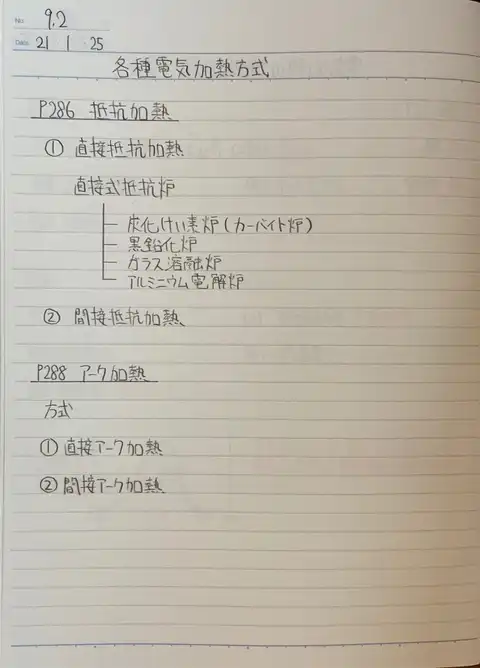 No. 9.2
Date 21 1 25
各種電気加熱方式
P286 抵抗加熱
① 直接抵抗加熱
直接式抵抗炉
炭化けい素炉(カーバイト炉)
黒鉛化炉
ガラス溶融炉
アルミニウム電解炉
② 間接抵抗加熱
P288 アーク加熱
方式
① 直接アーク加熱
② 間接アーク加熱